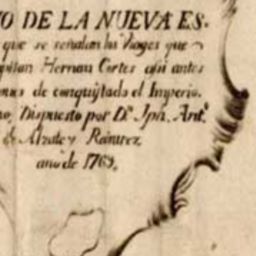 O DE LA NUEVA ES-
que se señalan los Viages que
pitan Hernan Cortes asi antes
mes de conquistado el Imperio.
no, Dispuesto por Dn. Jph. Ant.
de Alzate y Ramirez
año de 1769.